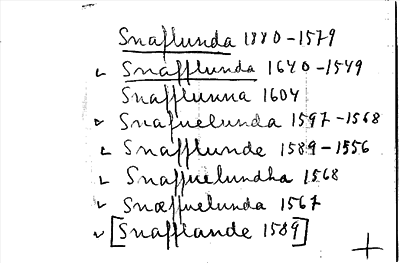 Snaflunda 1880-1579
✓ Snafflunda 1640-1549
Snafflunna 1604
✓ Snafuelunda 1597-1568
✓ Snafflunde 1589-1556
✓ Snaffuelundha 1568
✓ Snæffuelunda 1567
✓ [Snafflande 1589]